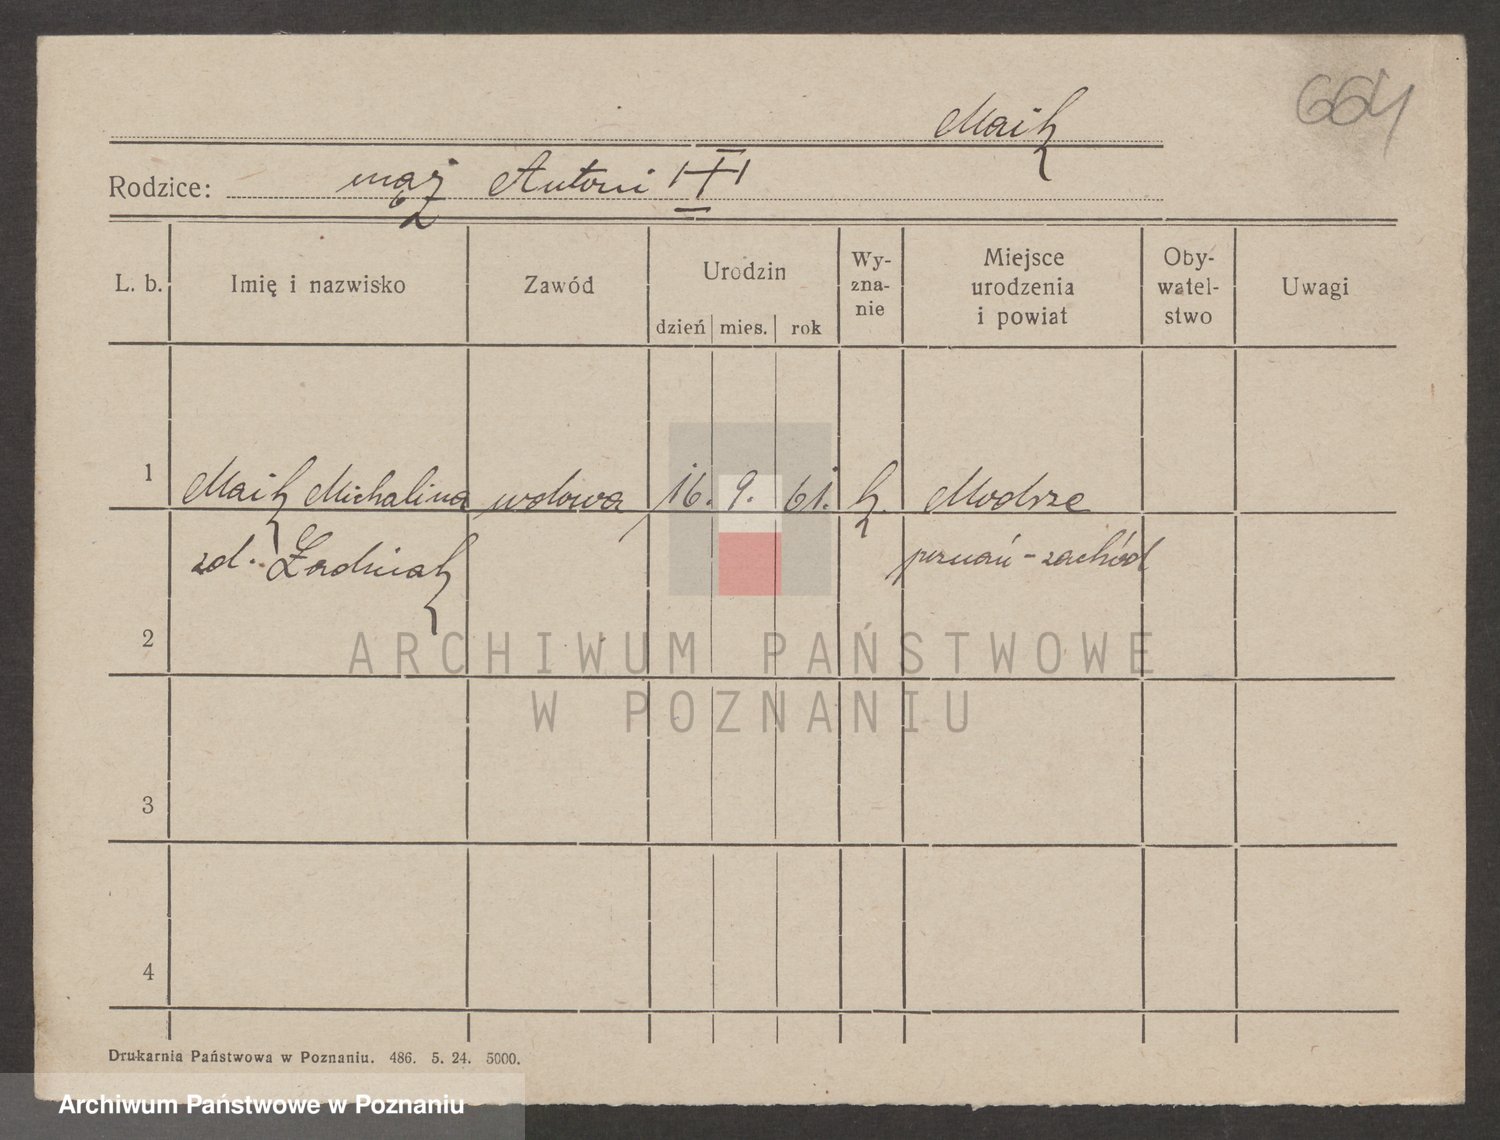 664
Maik
Rodzice: mąż Antoni
L. b. Imię i nazwisko Zawód Urodzin Wy-zna-nie Miejsce urodzenia i powiat Oby-watel-stwo Uwagi
dzień mies. rok
1 Maik Michalina wdowa 16. 9. 61. k. Modrze
zd. poznań-zachód
2
3
4
Drukarnia Państwowa w Poznaniu. 486. 5. 24. 5000.
ARCHIWUM PAŃSTWOWE
W POZNANIU
Archiwum Państwowe w Poznaniu